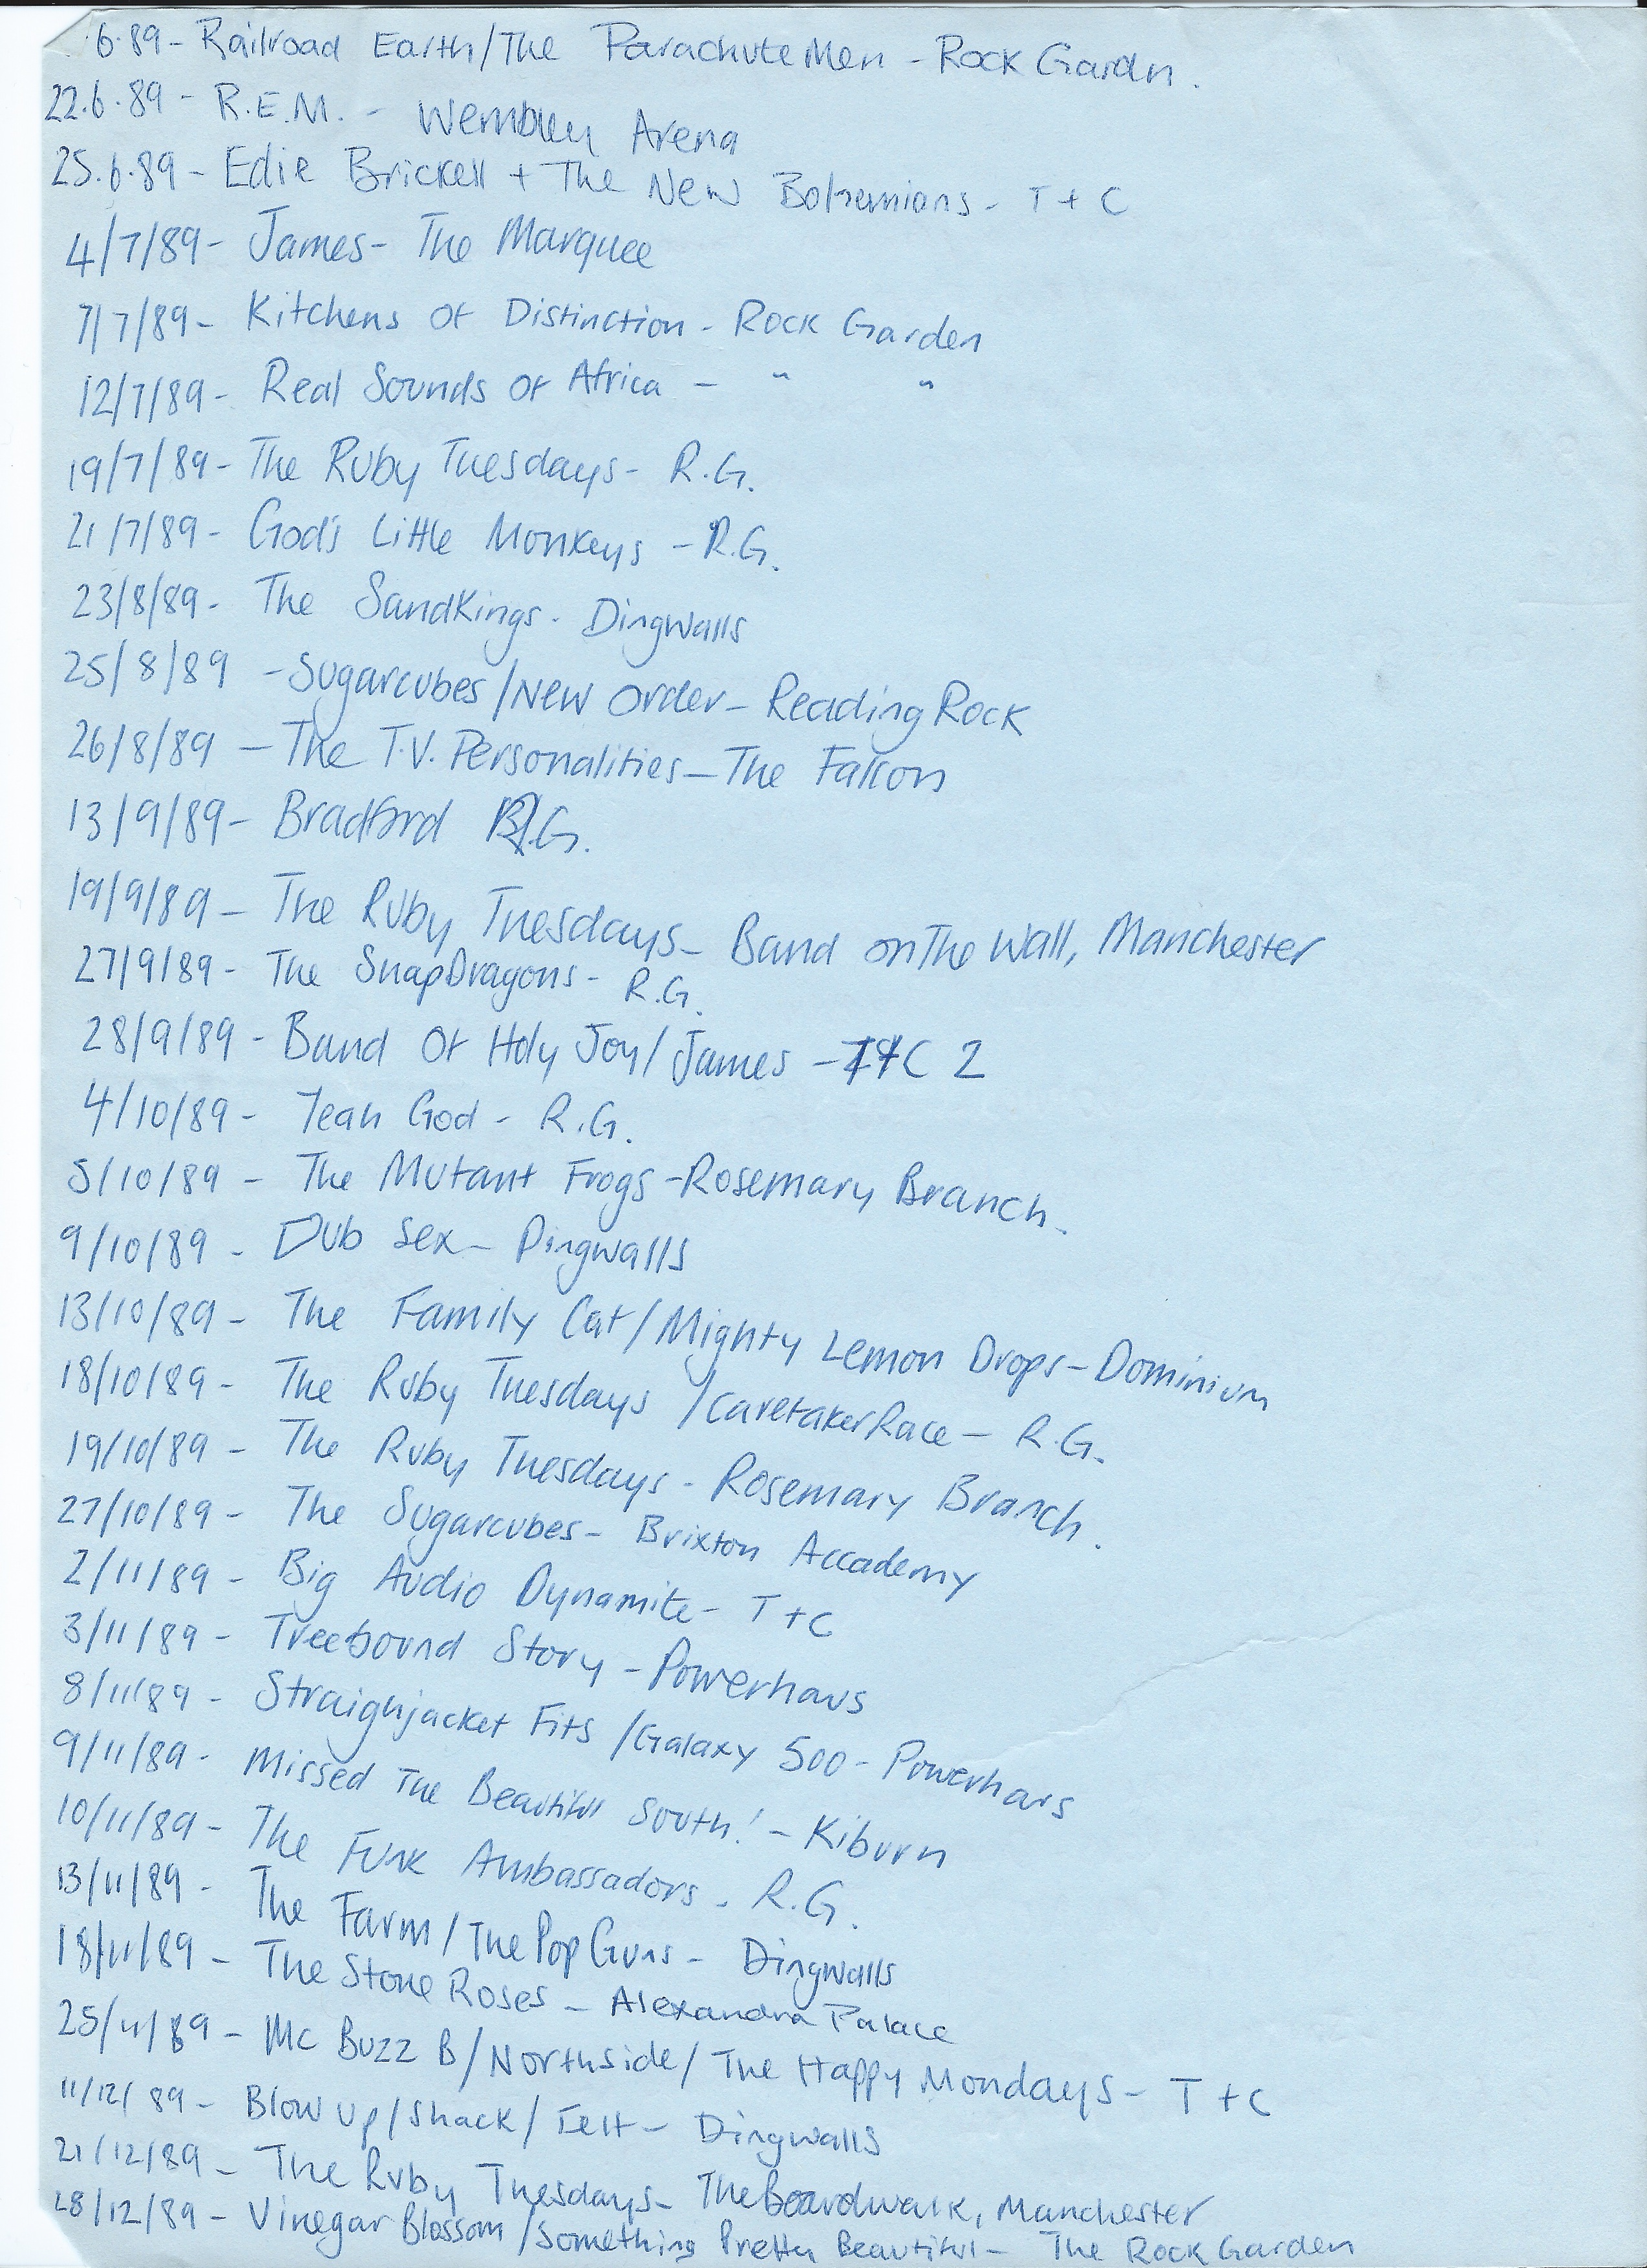 .6.89 - Railroad Earth/The Parachute Men - Rock Gardn.
22.6.89 - R.E.M. - Wembley Arena
25.6.89 - Edie Brickell + The New Bohemians - T + C
4/7/89 - James - The Marquee
7/7/89 - Kitchens Of Distinction - Rock Garden
12/7/89 - Real Sounds Of Africa - " "
19/7/89 - The Ruby Tuesdays - R.G.
21/7/89 - God's Little Monkeys - R.G.
23/8/89 - The SandKings - Dingwalls
25/8/89 - Sugarcubes/New Order - Reading Rock
26/8/89 - The T.V. Personalities - The Falcon
13/9/89 - Bradford R.G.
19/9/89 - The Ruby Tuesdays - Band on The Wall, Manchester
27/9/89 - The SnapDragons - R.G.
28/9/89 - Band Of Holy Joy/James - T+C 2
4/10/89 - Yeah God - R.G.
5/10/89 - The Mutant Frogs - Rosemary Branch.
9/10/89 - Dub Sex - Dingwalls
13/10/89 - The Family Cat/Mighty Lemon Drops - Dominium
18/10/89 - The Ruby Tuesdays /Caretaker Race - R.G.
19/10/89 - The Ruby Tuesdays - Rosemary Branch.
27/10/89 - The Sugarcubes - Brixton Accademy
2/11/89 - Big Audio Dynamite - T + C
3/11/89 - Treebound Story - Powerhaus
8/11/89 - Straighjacket Fits /Galaxy 500 - Powerhaus
9/11/89 - Missed The Beautiful South! - Kiburn
10/11/89 - The Funk Ambassadors - R.G.
13/11/89 - The Farm/The Pop Guns - Dingwalls
18/11/89 - The Stone Roses - Alexandra Palace
25/11/89 - Mc Buzz B/Northside/The Happy Mondays - T + C
11/12/89 - Blow Up/Shack/Felt - Dingwalls
21/12/89 - The Ruby Tuesdays - The Boardwalk, Manchester
28/12/89 - Vinegar Blossom/Something Pretty Beautiful - The Rock Garden